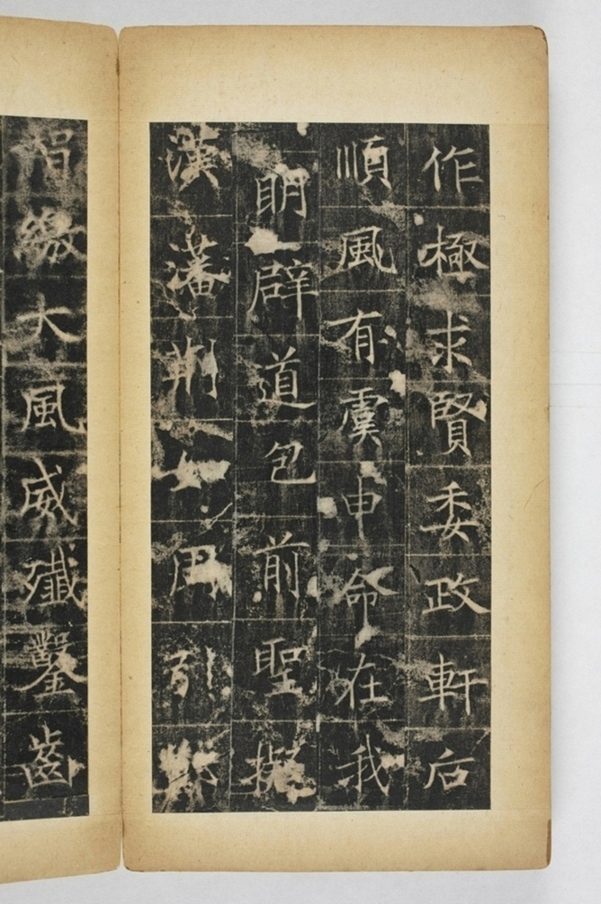 作極求賢委政軒后
順風有虞申命在我
明辟道包前聖擬
漢藩荆 用 鄭
繳大風威殱鑿齒